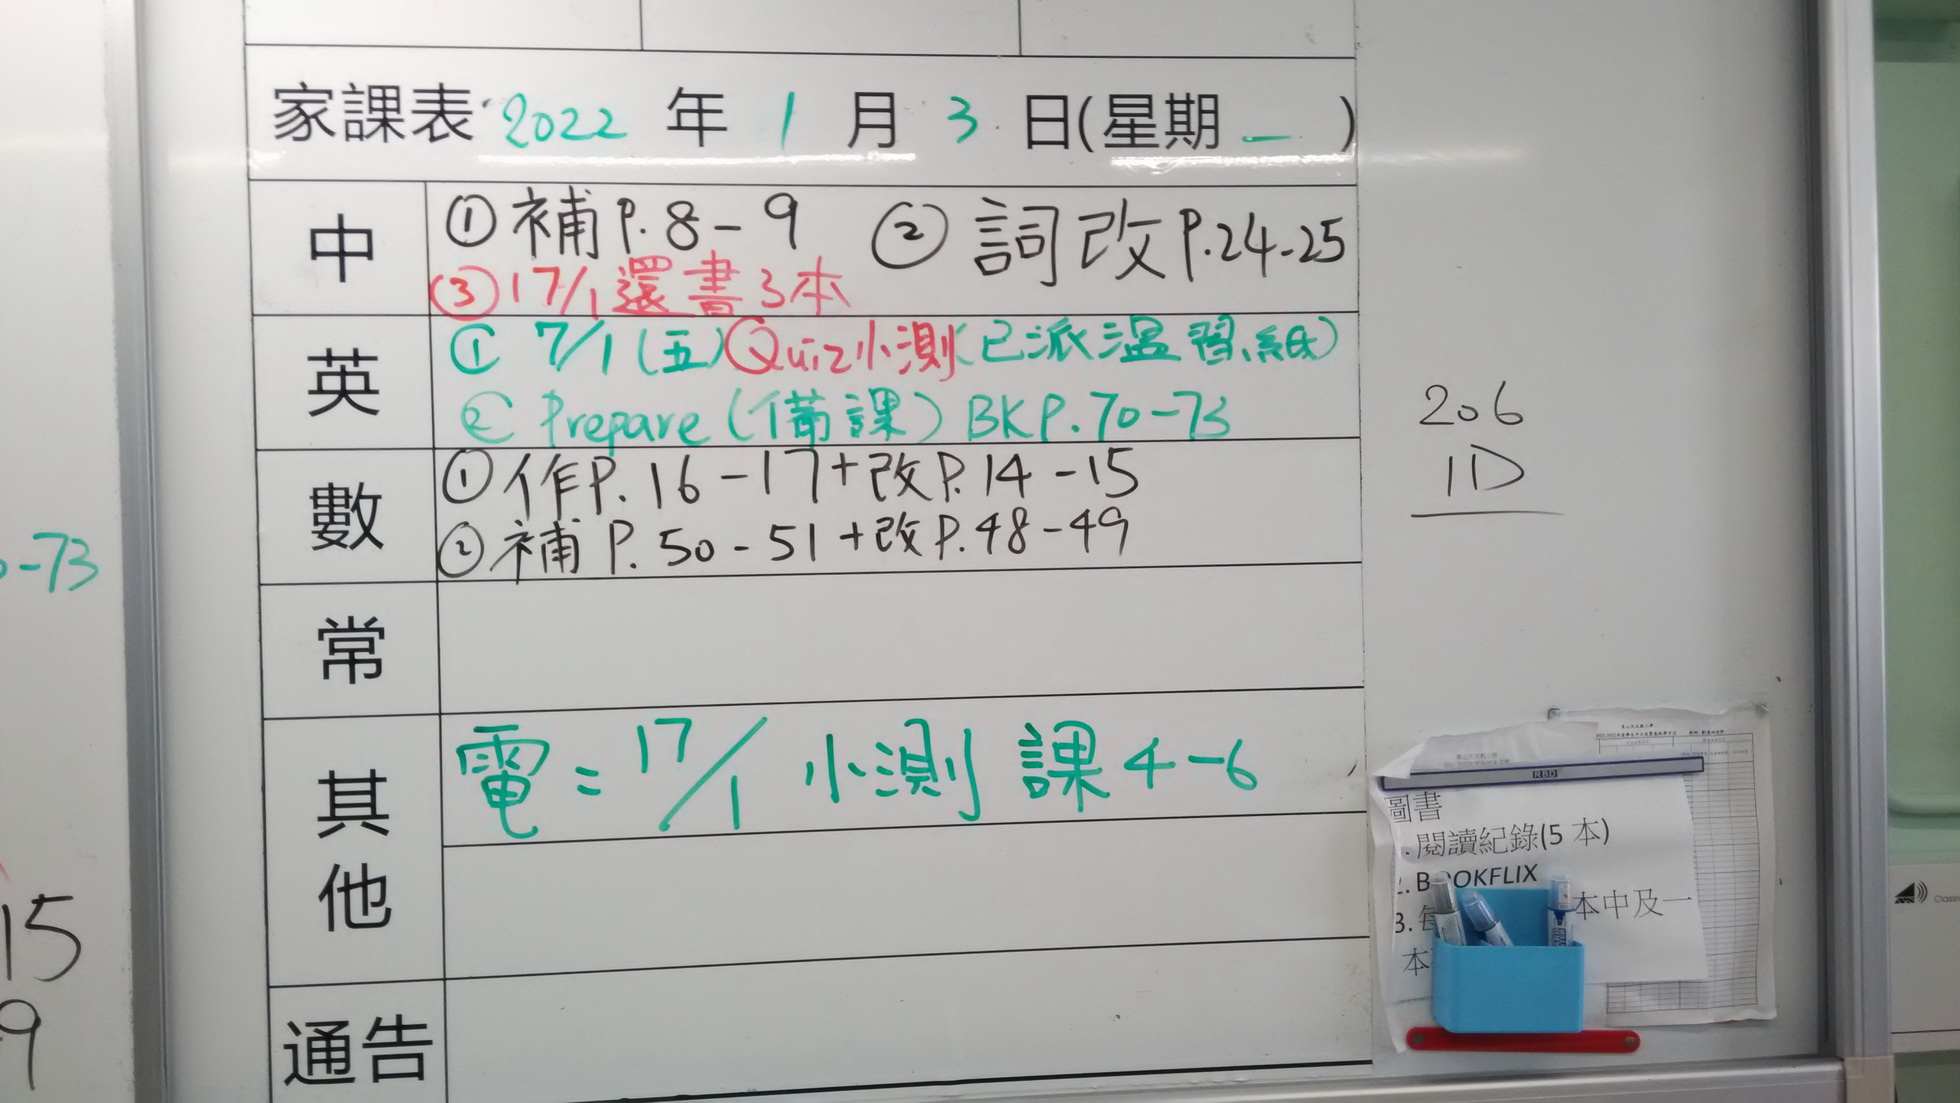 家課表 2022 年 1 月 3 日(星期 一 )
中
① 補 P.8-9 ② 詞改 P.24-25
③ 17/1 還書3本
英
① 7/1 (五) Quiz小測 (已派溫習紙)
② Prepare (備課) BK P.70-73
數
① 作 P.16-17+改 P.14-15
② 補 P.50-51+改 P.48-49
常
其他
電= 17/1 小測 課 4-6
通告
206
1D
-73
15
9
RBD
圖書
.閱讀紀錄(5 本)
BOOKFLIX
3. 每
本中及一
本